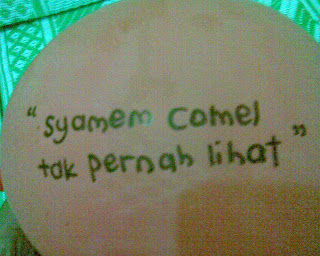 “syamem comel
tak pernah lihat”